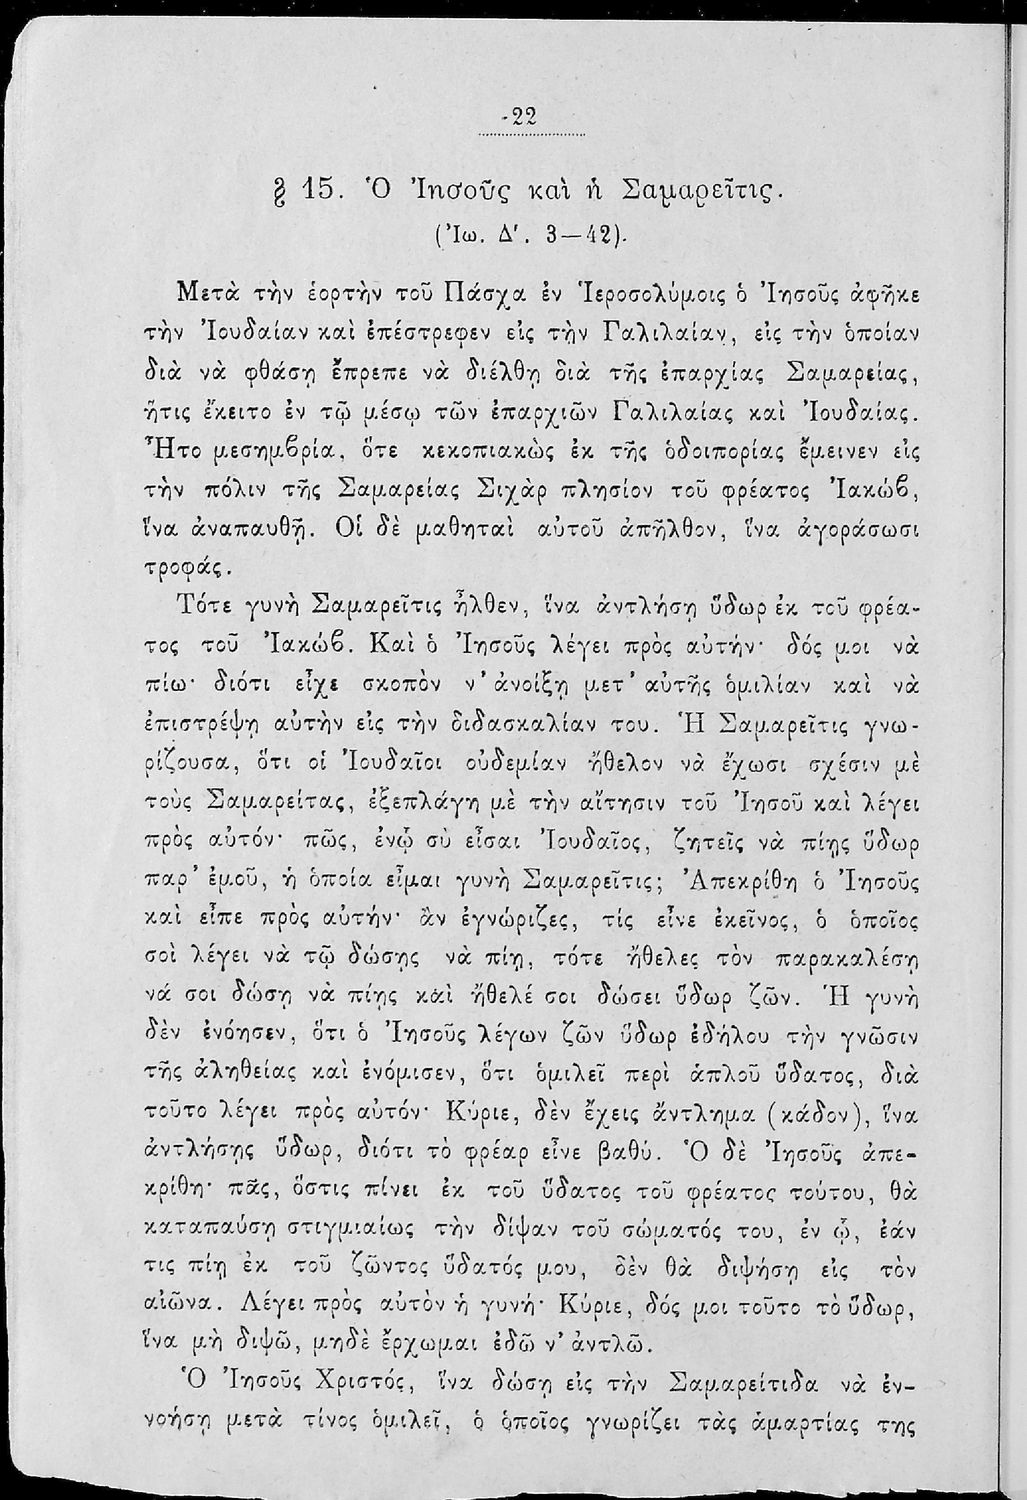 -22
§ 15. Ὁ Ἰησοῦς καὶ ἡ Σαμαρεῖτις.
(Ἰω. Δ'. 3—42).
Μετὰ τὴν ἑορτὴν τοῦ Πάσχα ἐν Ἱεροσολύμοις ὁ Ἰησοῦς ἀφῆκε
τὴν Ἰουδαίαν καὶ ἐπέστρεφεν εἰς τὴν Γαλιλαίαν, εἰς τὴν ὁποίαν
διὰ νὰ φθάσῃ ἔπρεπε νὰ διέλθῃ διὰ τῆς ἐπαρχίας Σαμαρείας,
ἥτις ἔκειτο ἐν τῷ μέσῳ τῶν ἐπαρχιῶν Γαλιλαίας καὶ Ἰουδαίας.
Ἦτο μεσημβρία, ὅτε κεκοπιακὼς ἐκ τῆς ὁδοιπορίας ἔμεινεν εἰς
τὴν πόλιν τῆς Σαμαρείας Σιχὰρ πλησίον τοῦ φρέατος Ἰακώβ,
ἵνα ἀναπαυθῇ. Οἱ δὲ μαθηταὶ αὐτοῦ ἀπῆλθον, ἵνα ἀγοράσωσι
τροφάς.
Τότε γυνὴ Σαμαρεῖτις ἦλθεν, ἵνα ἀντλήσῃ ὕδωρ ἐκ τοῦ φρέα-
τος τοῦ Ἰακώβ. Καὶ ὁ Ἰησοῦς λέγει πρὸς αὐτήν· δός μοι νὰ
πίω· διότι εἶχε σκοπὸν ν' ἀνοίξῃ μετ' αὐτῆς ὁμιλίαν καὶ νὰ
ἐπιστρέψῃ αὐτὴν εἰς τὴν διδασκαλίαν του. Ἡ Σαμαρεῖτις γνω-
ρίζουσα, ὅτι οἱ Ἰουδαῖοι οὐδεμίαν ἤθελον νὰ ἔχωσι σχέσιν μὲ
τοὺς Σαμαρείτας, ἐξεπλάγη μὲ τὴν αἴτησιν τοῦ Ἰησοῦ καὶ λέγει
πρὸς αὐτόν· πῶς, ἐνῷ σὺ εἶσαι Ἰουδαῖος, ζητεῖς νὰ πίῃς ὕδωρ
παρ' ἐμοῦ, ἡ ὁποία εἶμαι γυνὴ Σαμαρεῖτις; Ἀπεκρίθη ὁ Ἰησοῦς
καὶ εἶπε πρὸς αὐτήν· ἂν ἐγνώριζες, τίς εἶνε ἐκεῖνος, ὁ ὁποῖος
σοὶ λέγει νὰ τῷ δώσῃς νὰ πίῃ, τότε ἤθελες τὸν παρακαλέσῃ
νά σοι δώσῃ νὰ πίῃς καὶ ἤθελέ σοι δώσει ὕδωρ ζῶν. Ἡ γυνὴ
δὲν ἐνόησεν, ὅτι ὁ Ἰησοῦς λέγων ζῶν ὕδωρ ἐδήλου τὴν γνῶσιν
τῆς ἀληθείας καὶ ἐνόμισεν, ὅτι ὁμιλεῖ περὶ ἁπλοῦ ὕδατος, διὰ
τοῦτο λέγει πρὸς αὐτόν· Κύριε, δὲν ἔχεις ἄντλημα (κάδον), ἵνα
ἀντλήσῃς ὕδωρ, διότι τὸ φρέαρ εἶνε βαθύ. Ὁ δὲ Ἰησοῦς ἀπε-
κρίθη· πᾶς, ὅστις πίνει ἐκ τοῦ ὕδατος τοῦ φρέατος τούτου, θὰ
καταπαύσῃ στιγμιαίως τὴν δίψαν τοῦ σώματός του, ἐν ᾧ, ἐάν
τις πίῃ ἐκ τοῦ ζῶντος ὕδατός μου, δὲν θὰ διψήσῃ εἰς τὸν
αἰῶνα. Λέγει πρὸς αὐτὸν ἡ γυνή· Κύριε, δός μοι τοῦτο τὸ ὕδωρ,
ἵνα μὴ διψῶ, μηδὲ ἔρχωμαι ἐδῶ ν' ἀντλῶ.
Ὁ Ἰησοῦς Χριστός, ἵνα δώσῃ εἰς τὴν Σαμαρείτιδα νὰ ἐν-
νοήσῃ μετὰ τίνος ὁμιλεῖ, ὁ ὁποῖος γνωρίζει τὰς ἁμαρτίας της